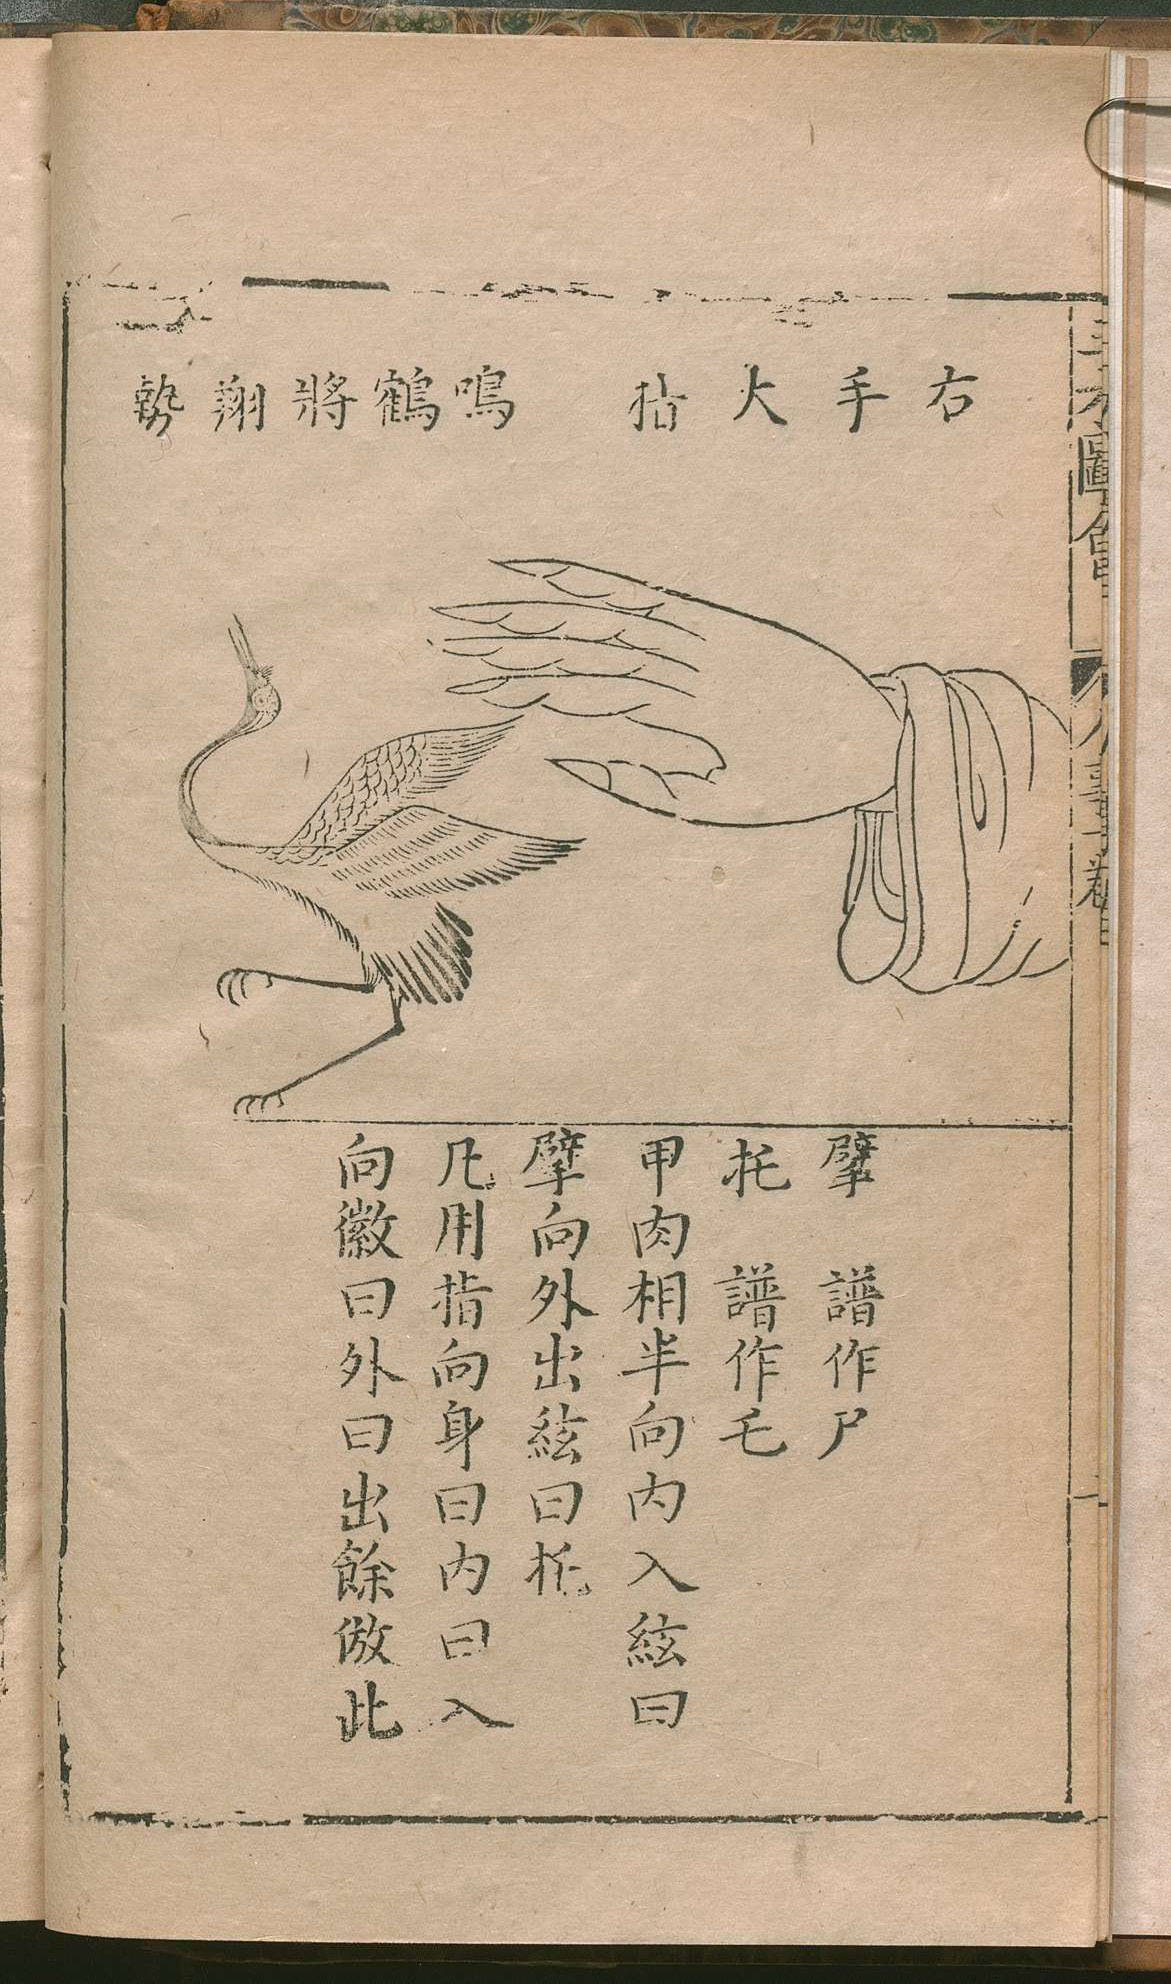 右手大指
鳴鶴將翔勢
擘 譜作尸
托 譜作乇
甲肉相半向內入絃曰
擘向外出絃曰托
凡用指向身曰內曰入
向徽曰外曰出餘倣此